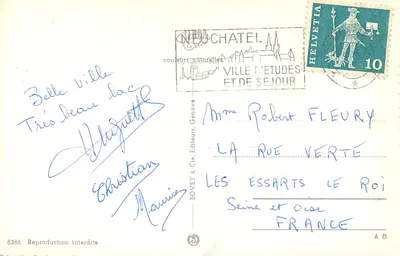 NEUCHATEL
VILLE D'ETUDES
ET DE SEJOUR
HELVETIA
10
Belle ville
Très beau lac
Huguette
Christian
Maurice
Mme Robert FLEURY
LA RUE VERTE
LES ESSARTS LE ROI
Seine et oise
FRANCE
BOVET & Cie, Editeurs, Genève
8386 Reproduction interdite
A B